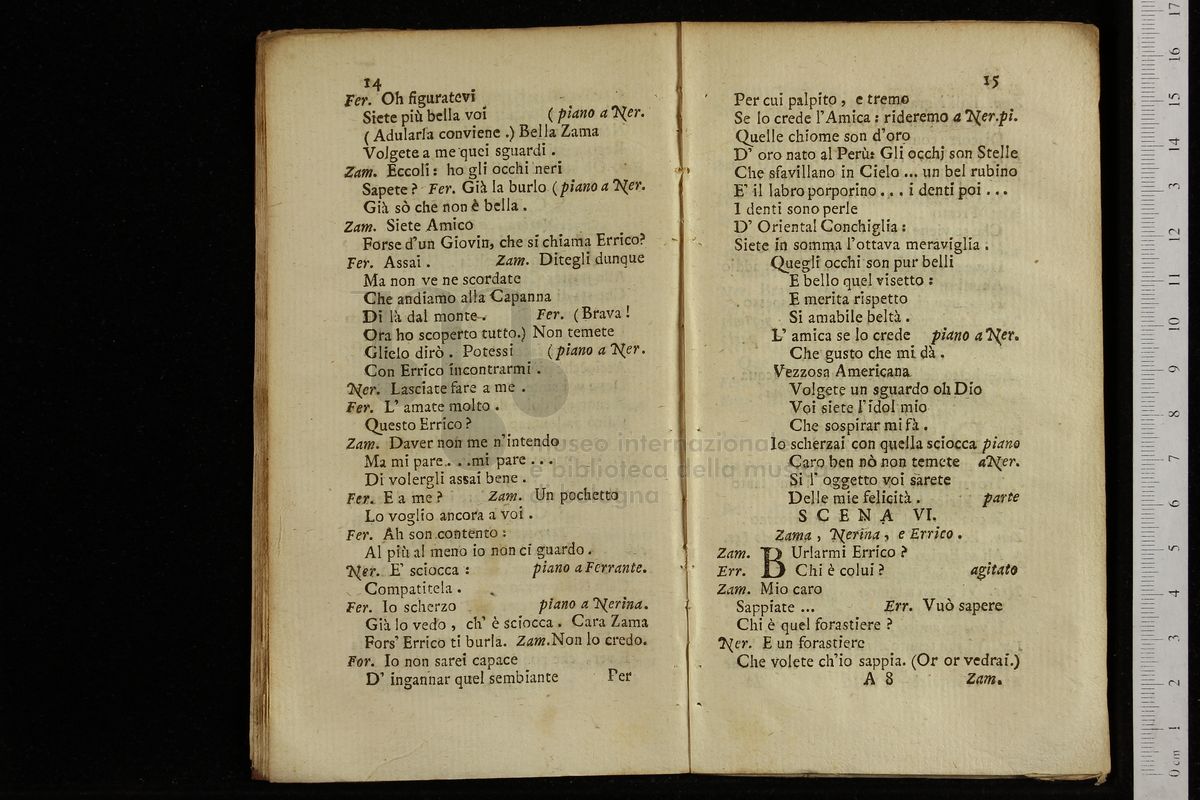 14
Fer. Oh figuratevi
Siete più bella voi (piano a Ner.
(Adularla conviene.) Bella Zama
Volgete a me quei sguardi.
Zam. Eccoli: ho gli occhi neri
Sapete? Fer. Già la burlo (piano a Ner.
Già sò che non è bella.
Zam. Siete Amico
Forse d'un Giovin, che si chiama Errico?
Fer. Assai. Zam. Ditegli dunque
Ma non ve ne scordate
Che andiamo alla Capanna
Di là dal monte. Fer. (Brava!
Ora ho scoperto tutto.) Non temete
Glielo dirò. Potessi (piano a Ner.
Con Errico incontrarmi.
Ner. Lasciate fare a me.
Fer. L' amate molto.
Questo Errico?
Zam. Daver non me n'intendo
Ma mi pare...mi pare...
Di volergli assai bene.
Fer. E a me? Zam. Un pochetto
Lo voglio ancora a voi.
Fer. Ah son contento:
Al più al meno io non ci guardo.
Ner. E' sciocca: piano a Ferrante.
Compatitela.
Fer. Io scherzo piano a Nerina.
Già lo vedo, ch' è sciocca. Cara Zama
Fors' Errico ti burla. Zam. Non lo credo.
For. Io non sarei capace
D' ingannar quel sembiante Per
15
Per cui palpito, e tremo
Se lo crede l'Amica: rideremo a Ner.pi.
Quelle chiome son d'oro
D' oro nato al Perù: Gli occhj son Stelle
Che sfavillano in Cielo... un bel rubino
E' il labro porporino... i denti poi...
I denti sono perle
D' Oriental Conchiglia:
Siete in somma l'ottava meraviglia.
Quegli occhi son pur belli
E bello quel visetto:
E merita rispetto
Si amabile beltà.
L' amica se lo crede piano a Ner.
Che gusto che mi dà.
Vezzosa Americana
Volgete un sguardo oh Dio
Voi siete l'idol mio
Che sospirar mi fà.
Io scherzai con quella sciocca piano
Caro ben nò non temete a Ner.
Si l' oggetto voi sarete
Delle mie felicità. parte
SCENA VI.
Zama, Nerina, e Errico.
Zam. BUrlarmi Errico?
Err. Chi è colui? agitato
Zam. Mio caro
Sappiate... Err. Vuò sapere
Chi è quel forastiere?
Ner. E un forastiere
Che volete ch'io sappia. (Or or vedrai.)
A 8 Zam.
museo internazionale
e biblioteca della musica
di bologna